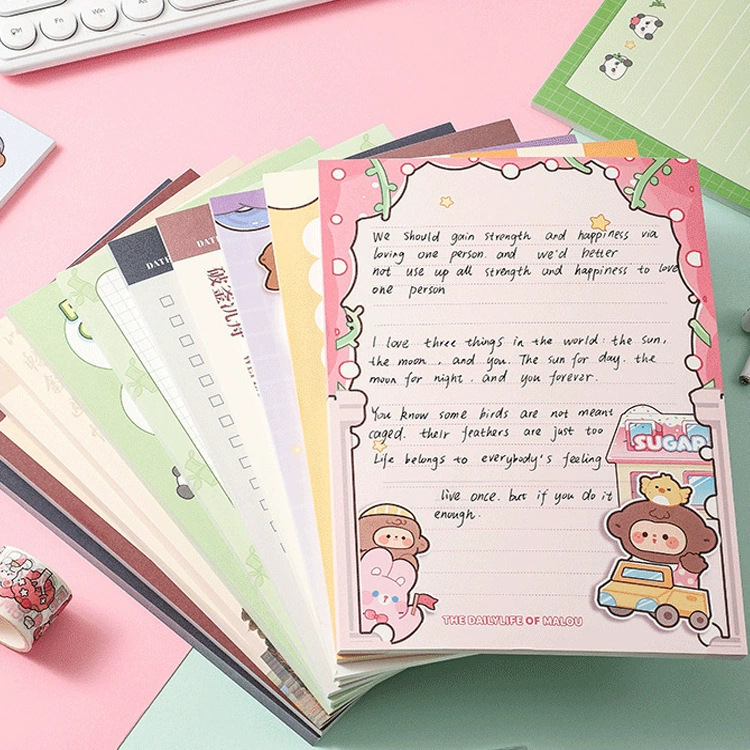 Ctrl
Fn
Win
Alt
We should gain strength and happiness via
loving one person. and we'd better
not use up all strength and happiness to love
one person
I love three things in the world: the sun,
the moon, and you. The sun for day. the
moon for night. and you forever.
You know some birds are not meant
caged. their feathers are just too
Life belongs to everybody's feeling
live once. but if you do it
enough.
SUGAR
THE DAILYLIFE OF MALOU
DATE
DAT
破釜沉舟